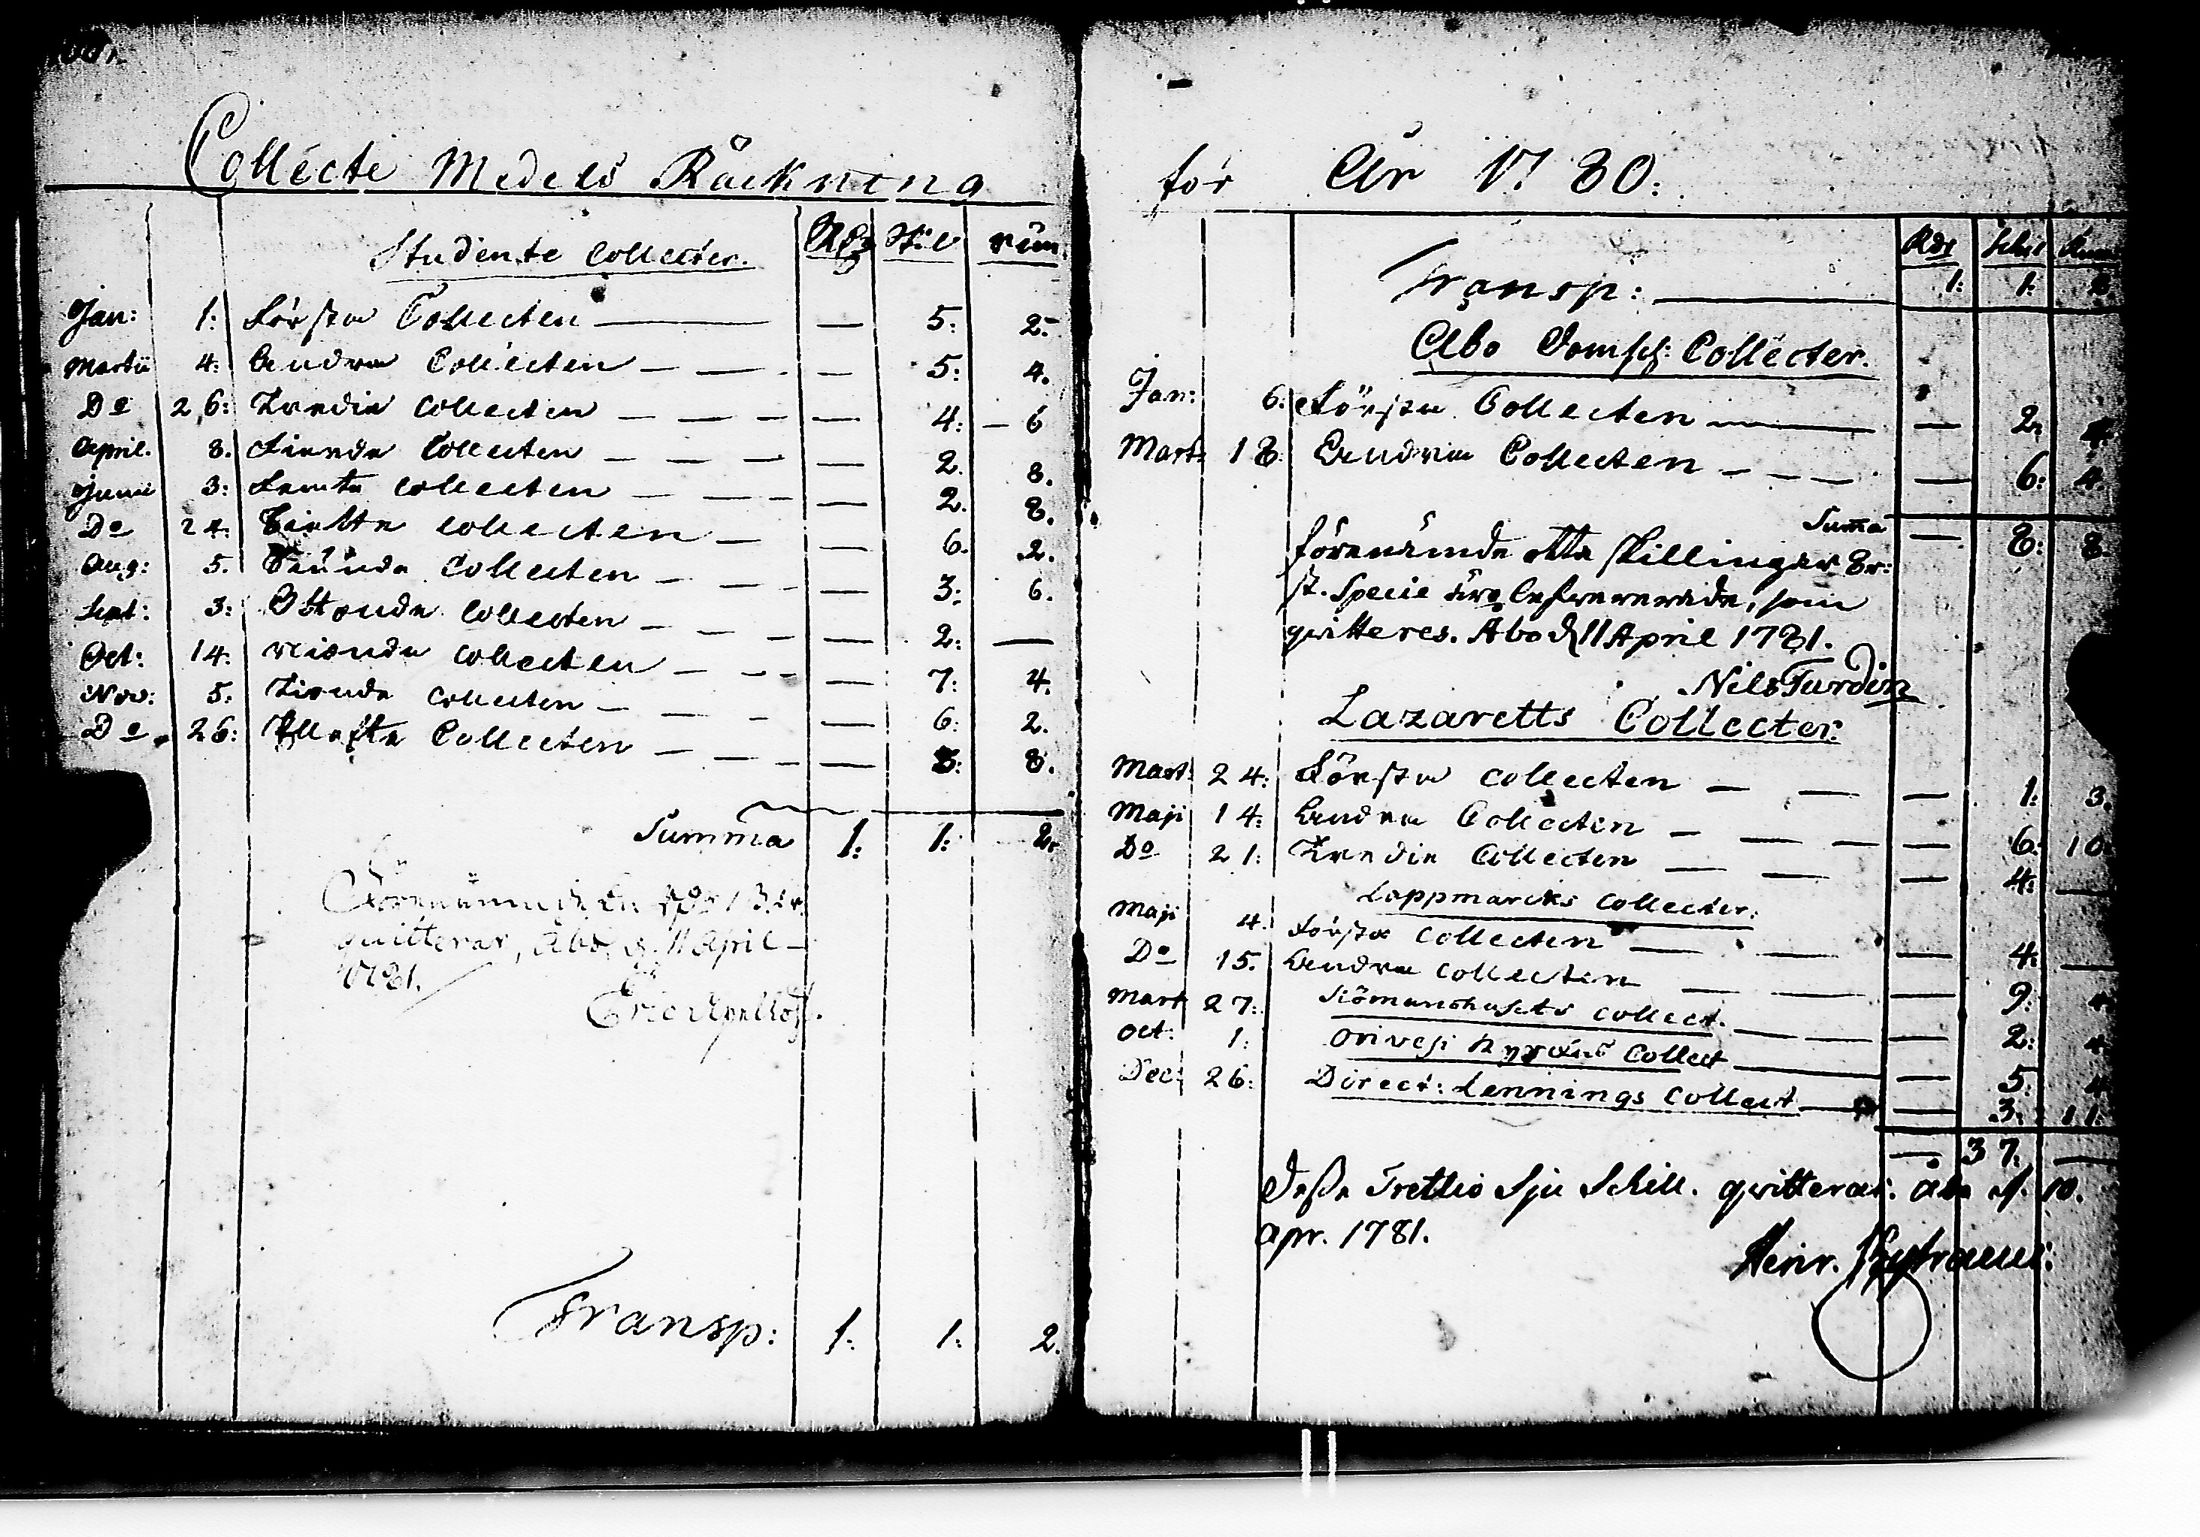 Collecte Medels Räckning
Studente Collecter. Rdr Skil rún
Jan: 1: Första Collecten — — 5: 2.
Martii 4: Andra Collecten — — 5: 4.
Do 26: Tredie Collecten — — 4: 6
April. 8. Fierde Collecten — — 2. 8.
Junii 3: Femte Collecten — — 2. 8.
Do 24. Siette Collecten — — 6. 2.
Aug: 5. Siunde Collecten — — 3: 6.
Sept: 3: Ottonde Collecten — — 2: —
Oct: 14. Nionde Collecten — — 7: 4.
Nov: 5. Tionde Collecten — — 6: 2.
Do 26: Ellofte Collecten — — 3: 8.
Summa 1: 1: 2.
qvitterar, Åbo, d. 11 April
1781.
Eric
Transp: 1: 1: 2.
för År 1780:
Rdr Schil Run
Transp: — 1: 1: 2.
Åbo Domk: Collecter.
Jan: 6: Första Collecten — — 2. 4.
Mart: 18: Andra Collecten — — 6: 4.
Summa — 8: 8.
förenämde otta skillingar 8 r:
st. Specie äro lefwererade, som
qvitteres. Åbo d 11 April 1781.
Nils Turdin
Lazaretts Collecter.
Mart: 24: Första Collecten — — 1: 3.
Maji 14: Andra Collecten — — 6: 10.
Do 21: Tredie Collecten — — 4: —
Lappmarcks Collecter.
Maji 4. Första Collecten — — 4: —
Do 15. Andra Collecten — — 9: 4.
Mart 27: Siömanshusets Collect. — — 2: 4.
Oct: 1: Orivesi Kyrckas Collect — — 5: 4
Dec: 26: Direct: Lennings Collect — — 3: 11.
— 37: —
Desse Trettio Sju Schill. qvitterar. Åbo d. 10.
Apr. 1781.
Henr.